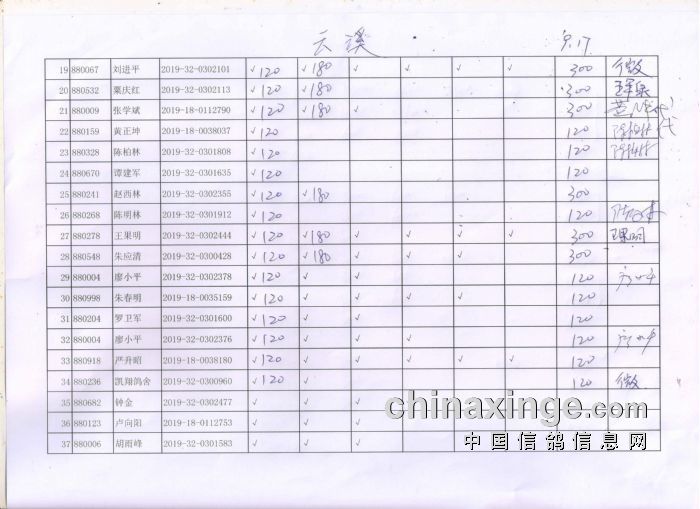 云溪 9.17
19 880067 刘进平 2019-32-0302101 √120 √180 √ √ √ √ 300 微
20 880532 粟庆红 2019-32-0302113 √120 √180 √ 300
21 880009 张学斌 2019-18-0112790 √120 √180 √ √ √ √ 300
22 880159 黄正坤 2019-18-0038037 √120 120
23 880328 陈柏林 2019-32-0301808 √120 120 陈柏林
24 880670 谭建军 2019-32-0301635 √120 120
25 880241 赵西林 2019-32-0302355 √120 √180 300
26 880268 陈明林 2019-32-0301912 √120 120
27 880278 王果明 2019-32-0302444 √120 √180 √ √ √ √ 300 王果明
28 880548 朱应清 2019-32-0300428 √120 √180 √ √ √ 300
29 880004 廖小平 2019-32-0302378 √120 √ √ 120
30 880998 朱春明 2019-18-0035159 √120 √ √ √ √ 120
31 880204 罗卫军 2019-32-0301600 √120 √ √ 120
32 880004 廖小平 2019-32-0302376 √120 √ √ √ 120
33 880918 严升昭 2019-18-0038180 √120 √ √ √ √ √ 120
34 880236 凯翔鸽舍 2019-32-0300960 √120 √ 120 微
35 880682 钟金 2019-32-0302477 √ √ √
36 880123 卢向阳 2019-18-0112753 √ √ √
37 880006 胡雨峰 2019-32-0301583 √ √ √
chinaxinge.com
中国信鸽信息网